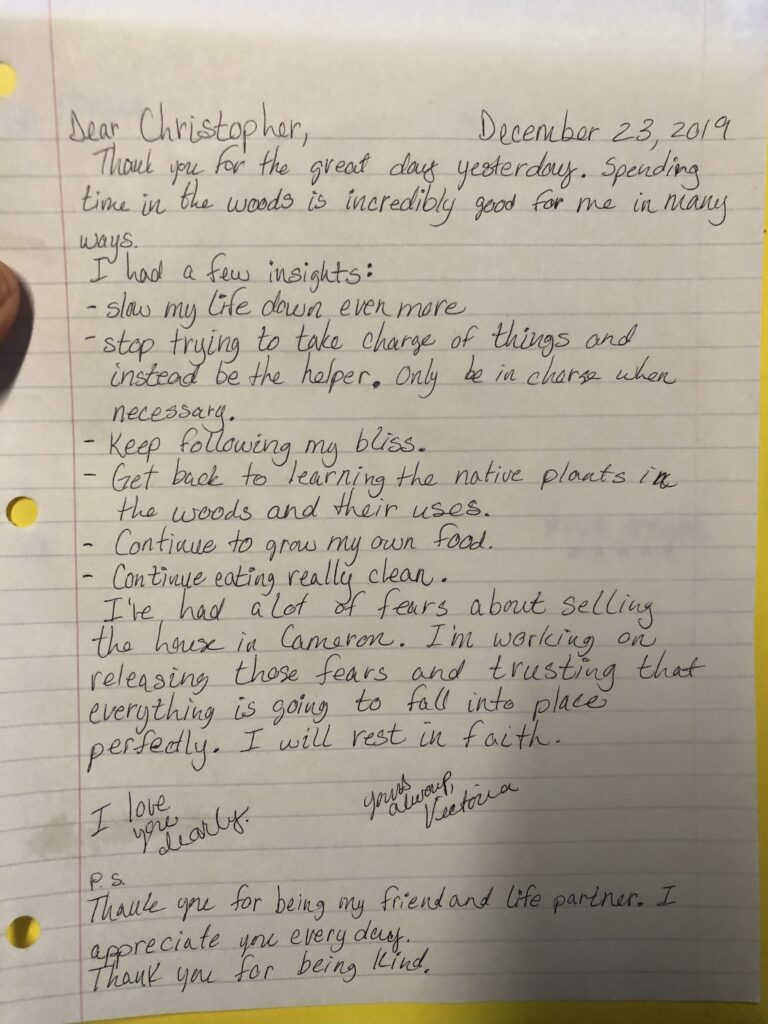 Dear Christopher, December 23, 2019
Thank you for the great day yesterday. Spending
time in the woods is incredibly good for me in many
ways.
I had a few insights:
- slow my life down even more
- stop trying to take charge of things and
instead be the helper. Only be in charge when
necessary.
- Keep following my bliss.
- Get back to learning the native plants in
the woods and their uses.
- Continue to grow my own food.
- Continue eating really clean.
I've had a lot of fears about selling
the house in Cameron. I'm working on
releasing those fears and trusting that
everything is going to fall into place
perfectly. I will rest in faith.
I love
you
dearly.
yours
always,
Victoria
P.S.
Thank you for being my friend and life partner. I
appreciate you every day.
Thank you for being kind.